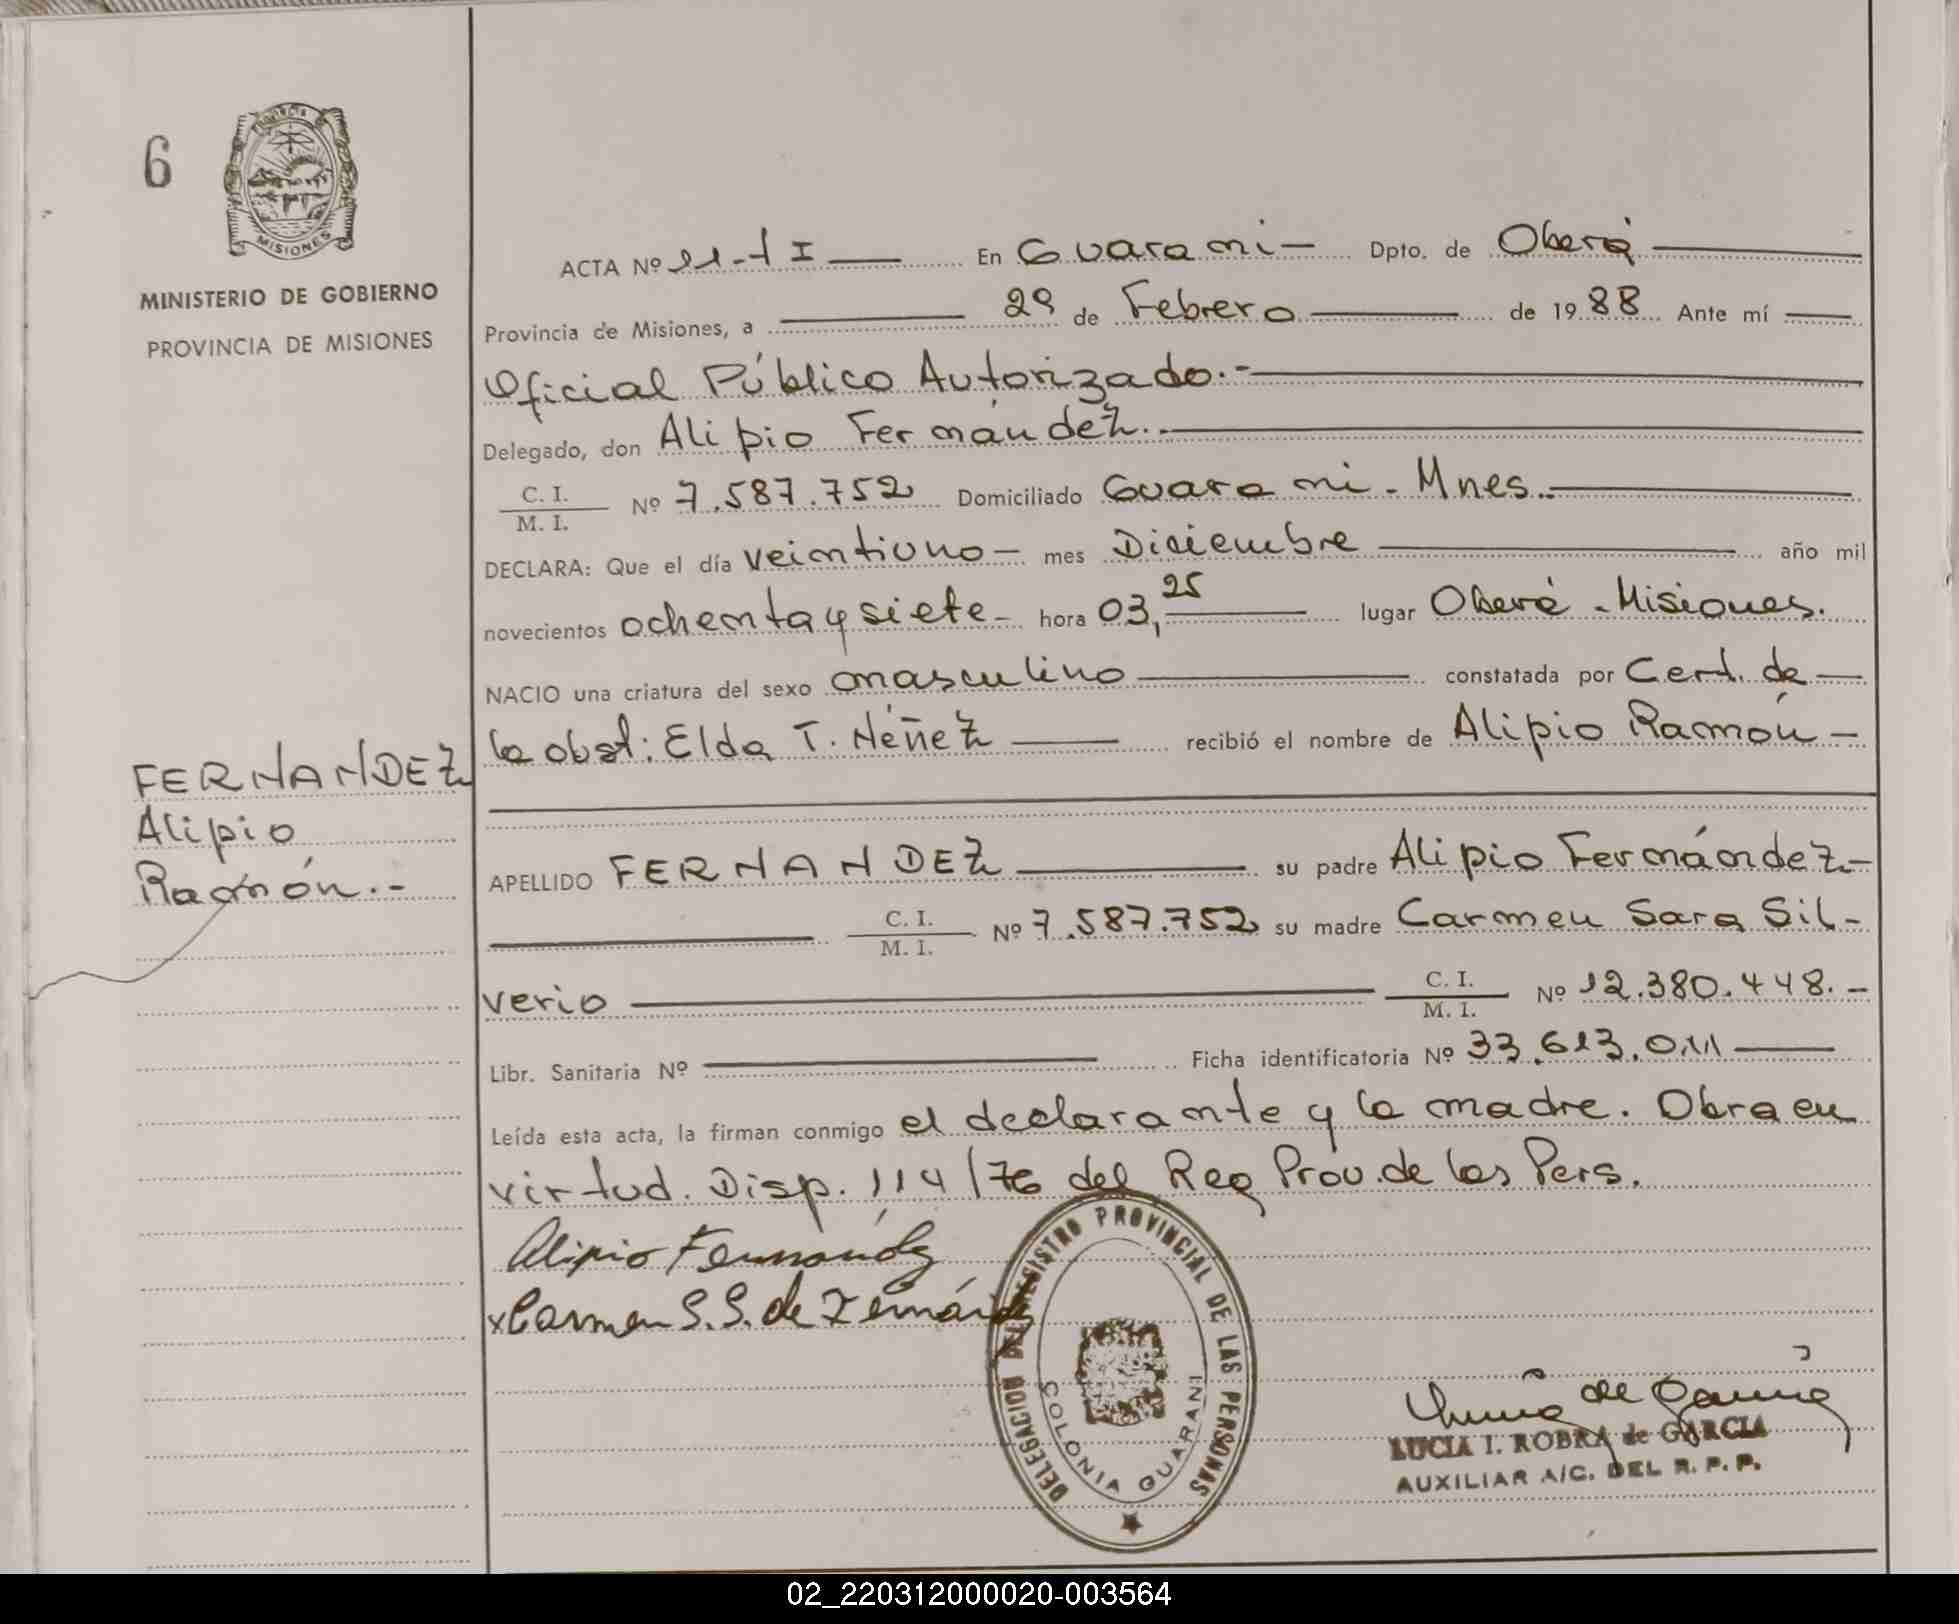 6
PROVINCIA
MISIONES
MINISTERIO DE GOBIERNO
PROVINCIA DE MISIONES
ACTA Nº 11-tI En Guarani Dpto. de Oberá
Provincia de Misiones, a 29 de Febrero de 1988 Ante mí
Oficial Público Autorizado.-
Delegado, don Alipio Fernández.-
C. I.
M. I. Nº 7.587.752 Domiciliado Guarani - Mnes.
DECLARA: Que el día veintiuno - mes Diciembre año mil
novecientos ochenta y siete - hora 03,25 lugar Oberá - Misiones.
NACIO una criatura del sexo masculino constatada por Cert. de
la obst: Elda T. Néñez recibió el nombre de Alipio Ramón -
FERNANDEZ
Alipio
Ramón.-
APELLIDO FERNANDEZ su padre Alipio Fernández-
C. I.
M. I. Nº 7.587.752 su madre Carmen Sara Sil-
verio C. I.
M. I. Nº 12.380.448.-
Libr. Sanitaria Nº Ficha identificatoria Nº 33.613.011
Leída esta acta, la firman conmigo el declarante y la madre. Obra en
virtud. Disp. 114/76 del Reg Prov. de las Pers.
Alipio Fernández
x Carmen S. S. de Fernández
DELEGACION DEL REGISTRO PROVINCIAL DE LAS PERSONAS
COLONIA GUARANI
de García
LUCIA I. ROBRA de GARCIA
AUXILIAR A/C. DEL R. P. P.
02_220312000020-003564